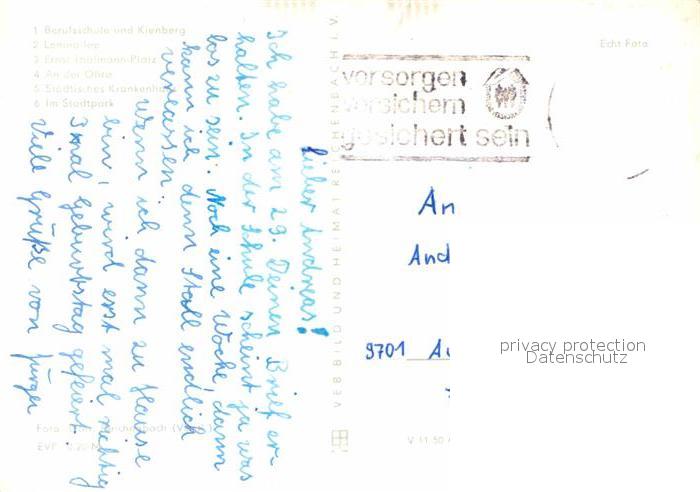 1 Berufsschule und Kienberg
2 Leninallee
3 Ernst-Thälmann-Platz
4 An der Ohre
5 Städtisches Krankenhaus
6 Im Stadtpark
Echt Foto
vorsorgen
versichern
gesichert sein
Lieber Andreas!
Ich habe am 29. Deinen Brief er
halten. In der Schule scheint ja was
los zu sein. Noch eine Woche, dann
kann ich denn Stall endlich
verlassen.
Wenn ich dann zu Hause
bin, wird erst mal richtig
3 mal Geburtstag gefeiert.
Viele Grüße von Jürgen
An
And
9701 Au
VEB BILD UND HEIMAT REICHENBACH I. V.
Foto
Reichenbach (Vogtl.)
EVP 0,20 M
V 11 50
privacy protection
Datenschutz